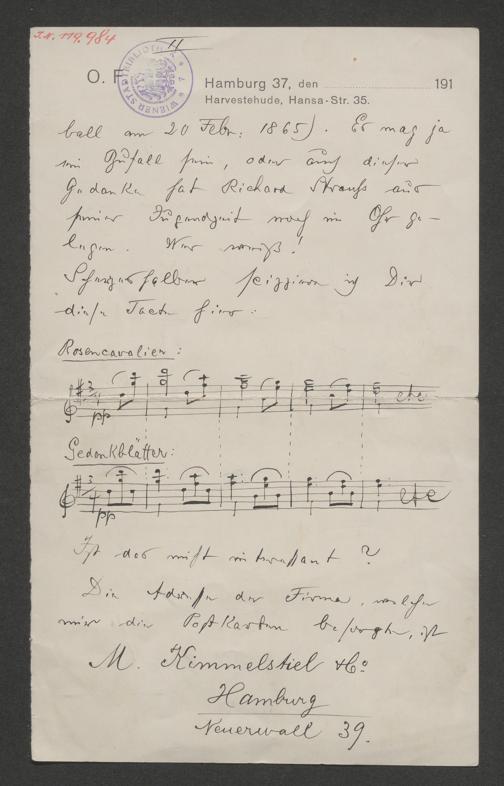 I.N. 119.984
II
WIENER STADTBIBLIOTHEK
O. F
Hamburg 37, den 191
Harvestehude, Hansa-Str. 35.
ball am 20 Febr: 1865). Es mag ja
ein Zufall sein, oder auch dieser
Gedanke hat Richard Strauss aus
seiner Jugendzeit noch im Ohr ge-
legen. Wer weiß!
Scherzeshalber skizziere ich Dir
diese Tacte hier:
Rosencavalier:
3/4 pp etc
Gedenkblätter:
3/4 pp etc
Ist das nicht interessant?
Die Adresse der Firma, welche
mir die Postkarten besorgte, ist
M. Kimmelstiel & Co
Hamburg
Neuerwall 39.